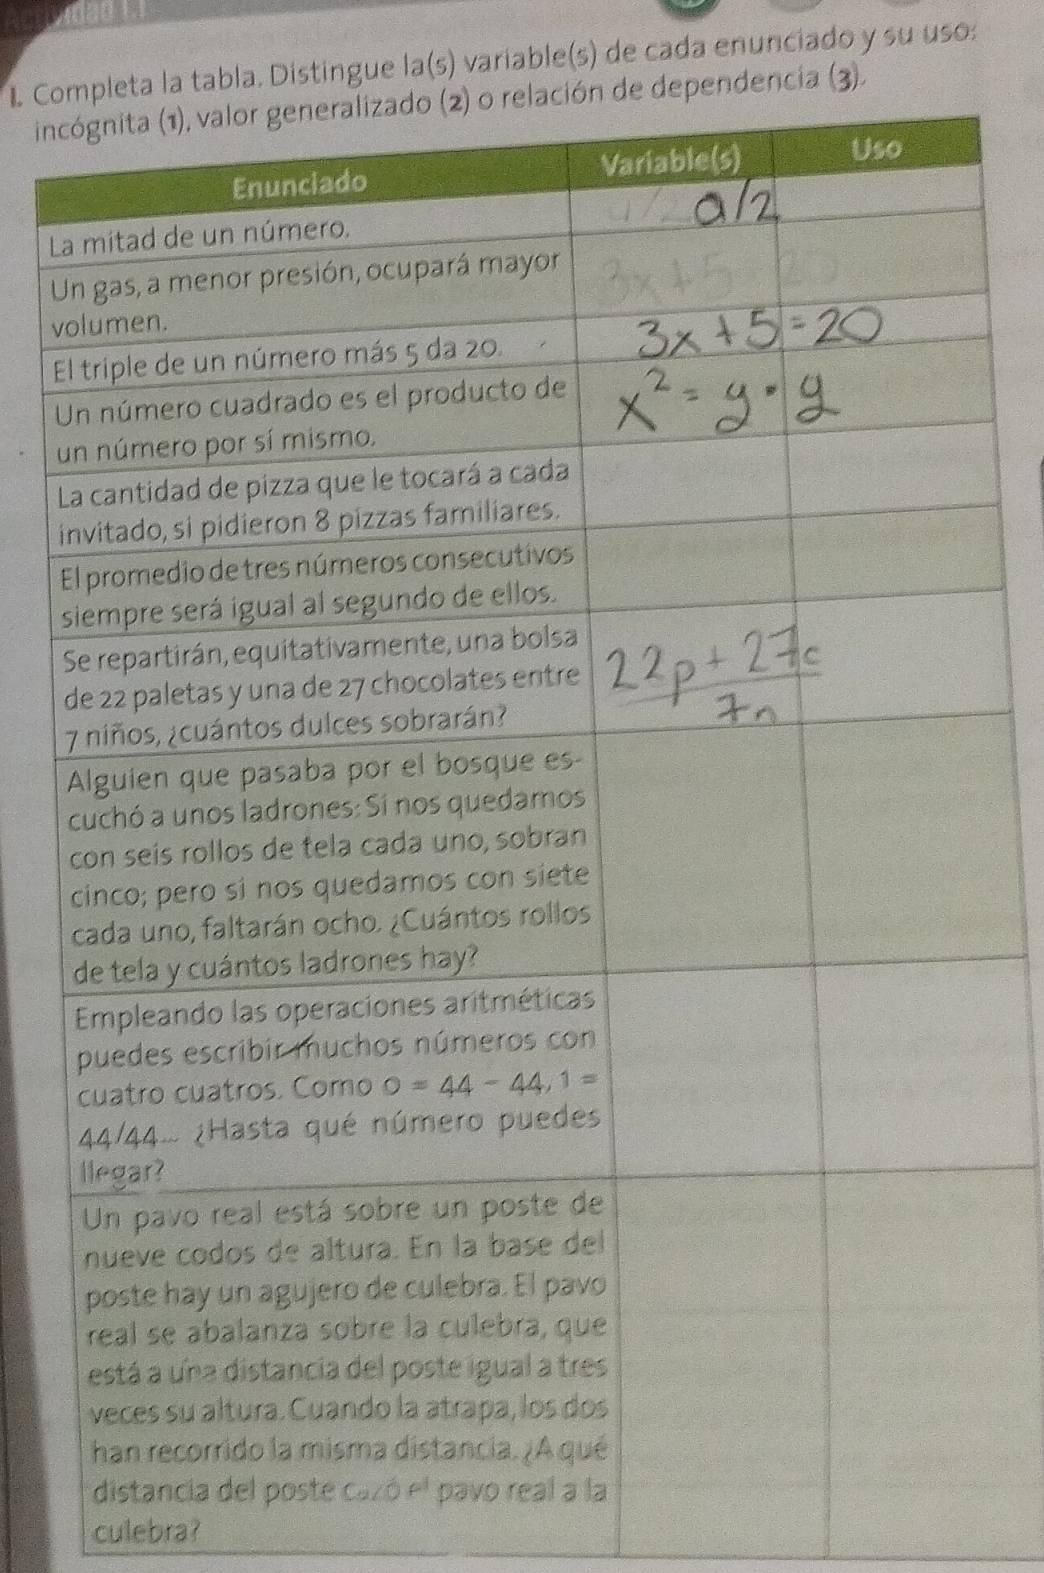 1. Completa la tabla. Distingue la(s) variable(s) de cada enunciado y su uso:
incógnita (1), valor generalizado (2) o relación de dependencia (3).
Enunciado Variable(s) Uso
La mitad de un número. a/2
Un gas, a menor presión, ocupará mayor
volumen.
El triple de un número más 5 da 20. 3x + 5 = 20
Un número cuadrado es el producto de
un número por sí mismo. x² = y · y
La cantidad de pizza que le tocará a cada
invitado, si pidieron 8 pizzas familiares.
El promedio de tres números consecutivos
siempre será igual al segundo de ellos.
Se repartirán, equitativamente, una bolsa
de 22 paletas y una de 27 chocolates entre
7 niños, ¿cuántos dulces sobrarán?
22p + 27c
7n
Alguien que pasaba por el bosque es-
cuchó a unos ladrones: Si nos quedamos
con seis rollos de tela cada uno, sobran
cinco; pero si nos quedamos con siete
cada uno, faltarán ocho. ¿Cuántos rollos
de tela y cuántos ladrones hay?
Empleando las operaciones aritméticas
puedes escribir muchos números con
cuatro cuatros. Como 0 = 44 - 44, 1 =
44/44... ¿Hasta qué número puedes
llegar?
Un pavo real está sobre un poste de
nueve codos de altura. En la base del
poste hay un agujero de culebra. El pavo
real se abalanza sobre la culebra, que
está a una distancia del poste igual a tres
veces su altura. Cuando la atrapa, los dos
han recorrido la misma distancia. ¿A qué
distancia del poste cazó el pavo real a la
culebra?